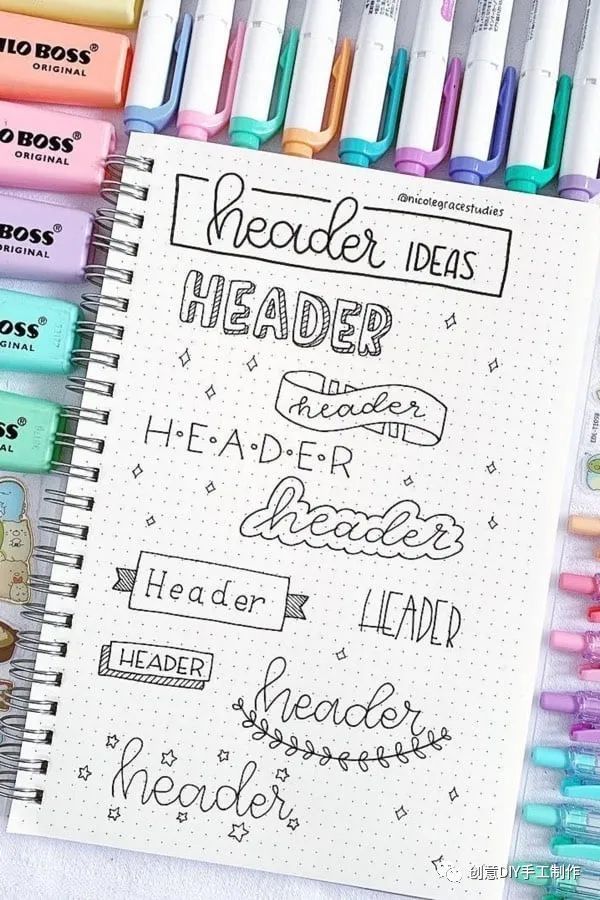 LO BOSS®
ORIGINAL
O BOSS®
ORIGINAL
BOSS®
ORIGINAL
OSS®
GINAL
SS®
NAL
@nicolegracestudies
header IDEAS
HEADER
header
H•E•A•D•E•R
header
Header
HEADER
HEADER
header
header
创意DIY手工制作